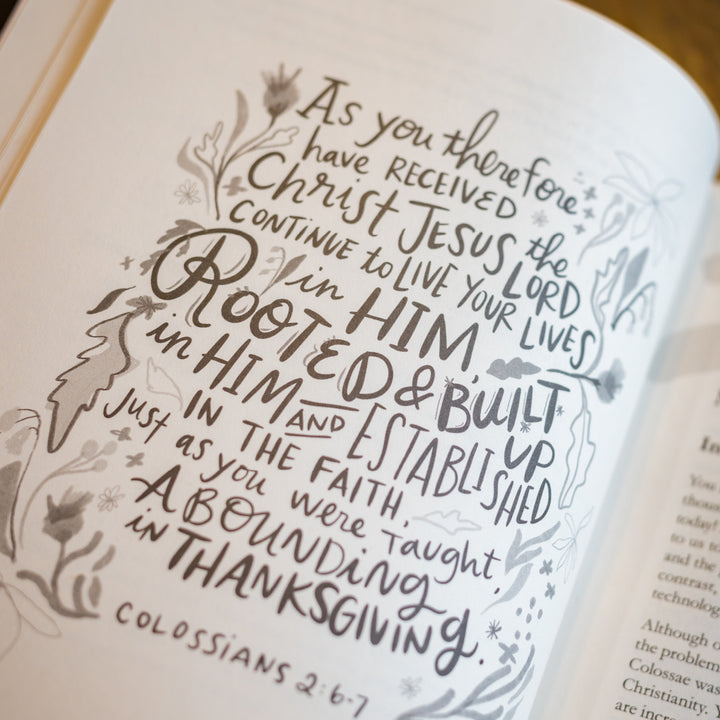 As you therefore
have RECEIVED
Christ JESUS the
LORD
CONTINUE to LIVE YOUR LIVES
in HIM
ROOTED & BUILT
UP
in HIM AND ESTABLISHED
IN THE FAITH,
Just as you were Taught,
ABOUNDING
in THANKSGIVING.
COLOSSIANS 2:6-7
You
today!
to us to
and the
contrast,
Although
the problem
Colossae was
Christianity.
are